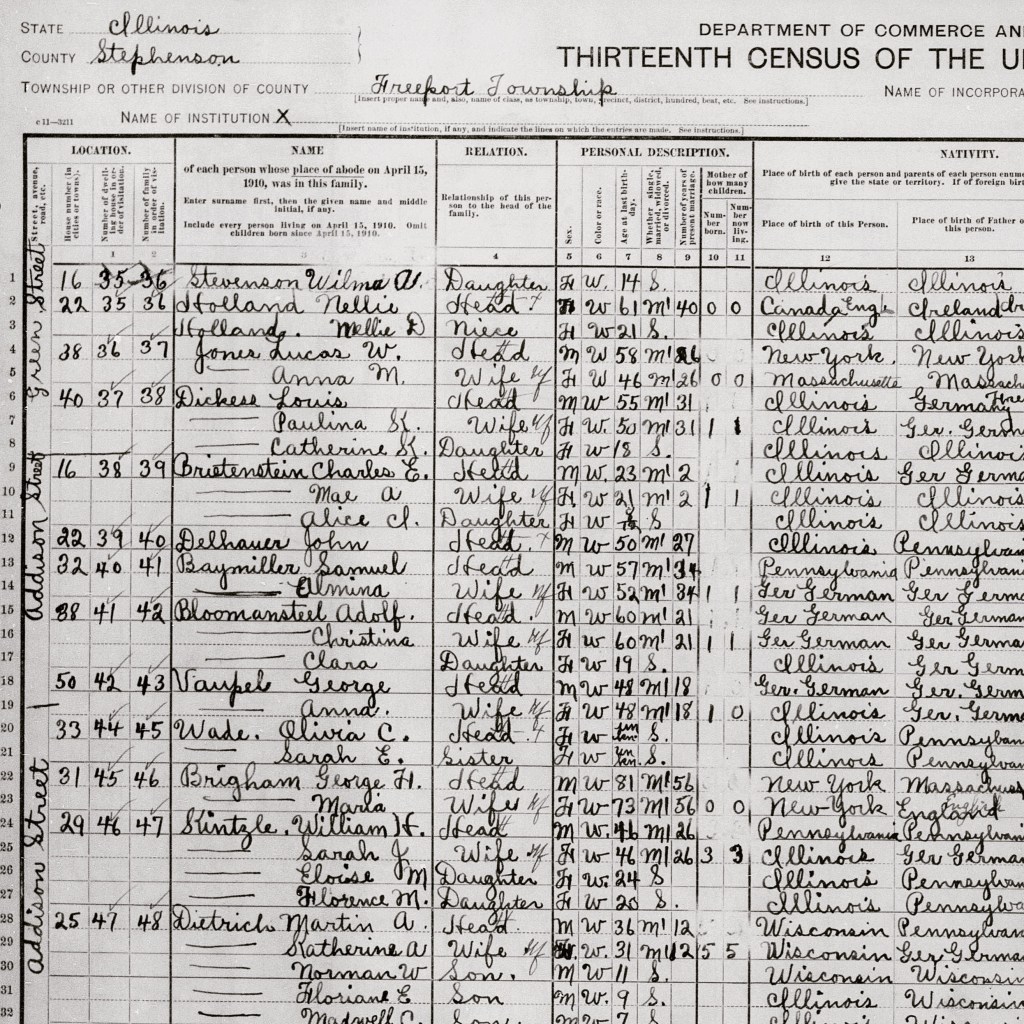 STATE Illinois
DEPARTMENT OF COMMERCE AN
COUNTY Stephenson
THIRTEENTH CENSUS OF THE U
TOWNSHIP OR OTHER DIVISION OF COUNTY Freeport Township
NAME OF INCORPORA
[Insert proper name and, also, name of class, as township, town, precinct, district, hundred, beat, etc. See instructions.]
c 11—3211 NAME OF INSTITUTION X
[Insert name of institution, if any, and indicate the lines on which the entries are made. See instructions.]
LOCATION. NAME RELATION. PERSONAL DESCRIPTION. NATIVITY.
Street, avenue, road, etc.
House number (in cities or towns).
Number of dwelling house in order of visitation.
Number of family in order of visitation.
of each person whose place of abode on April 15, 1910, was in this family.
Enter surname first, then the given name and middle initial, if any.
Include every person living on April 15, 1910. Omit children born since April 15, 1910.
Relationship of this person to the head of the family.
Sex.
Color or race.
Age at last birthday.
Whether single, married, widowed, or divorced.
Number of years of present marriage.
Mother of how many children.
Number born.
Number now living.
Place of birth of each person and parents of each person enum
give the state or territory. If of foreign birt
Place of birth of this Person.
Place of birth of Father o
this person.
1 2 3 4 5 6 7 8 9 10 11 12 13
Green Street
1 16 35 36 Stevenson Wilma Daughter F W. 14 S. Illinois Illinois
2 22 35 36 Holland Nellie Head F W 61 M1 40 0 0 Canada Eng. Ireland
3 Holland. Mellie D Niece F W 21 S. Illinois Illinois
4 38 36 37 Jones Lucas W. Head M W 58 M1 26 New York. New York
5 Anna M. Wife F W 46 M1 26 0 0 Massachusetts Massach
6 40 37 38 Dickese Louis Head M W 55 M1 31 Illinois Germany
7 Paulina K. Wife F W. 50 M1 31 1 1 Illinois Ger. Germ
8 Catherine K. Daughter F W 18 S. Illinois Illinois
Addison Street
9 16 38 39 Brietenstein Charles E. Head M W. 23 M1 2 Illinois Ger Germa
10 Mae A Wife F W 21 M1 2 1 1 Illinois Illinois
11 Alice I. Daughter F W S Illinois Illinois
12 22 39 40 Delhauer John Head. M W 50 M1 27 Illinois Pennsylvan
13 32 40 41 Baymiller Samuel Head M W 57 M1 34 Pennsylvania Pennsylvani
14 Almina Wife F W 52 M1 34 1 1 Ger German Ger Germa
15 38 41 42 Bloomansteel Adolf. Head. M W 60 M1 21 Ger German Ger German
16 Christina Wife F W 60 M1 21 1 1 Ger German Ger German
17 Clara Daughter F W 19 S. Illinois Ger Germ
18 50 42 43 Vaupel George Head M W 48 M1 18 Ger. German Ger. Germ
19 Anna. Wife F W 48 M1 18 1 0 Illinois Ger. Germa
20 33 44 45 Wade. Olivia C. Head F W S. Illinois Pennsylvan
21 Sarah E. Sister F W S. Illinois Pennsylvan
Addison Street
22 31 45 46 Brigham George H. Head M W 81 M1 56 New York Massachus
23 Maria Wife F W 73 M1 56 0 0 New York England English
24 29 46 47 Kintzle. William H. Head M W. 46 M1 26 Pennsylvania Pennsylvani
25 Sarah J Wife F W 46 M1 26 3 3 Illinois Ger German
26 Eloise M Daughter F W. 24 S Illinois Pennsylvan
27 Florence M. Daughter F W 20 S. Illinois Pennsylvan
28 25 47 48 Dietrich Martin A. Head. M W 36 M1 12 Wisconsin Pennsylvan
29 Katherine A Wife W. 31 M1 12 5 5 Wisconsin Ger Germa
30 Norman W Son. M W 11 S. Wisconsin Wisconsin
31 Floriane E Son M W. 9 S. Illinois Wisconsin
32 Maxwell C. Son M W 7 S. Illinois Wiscon